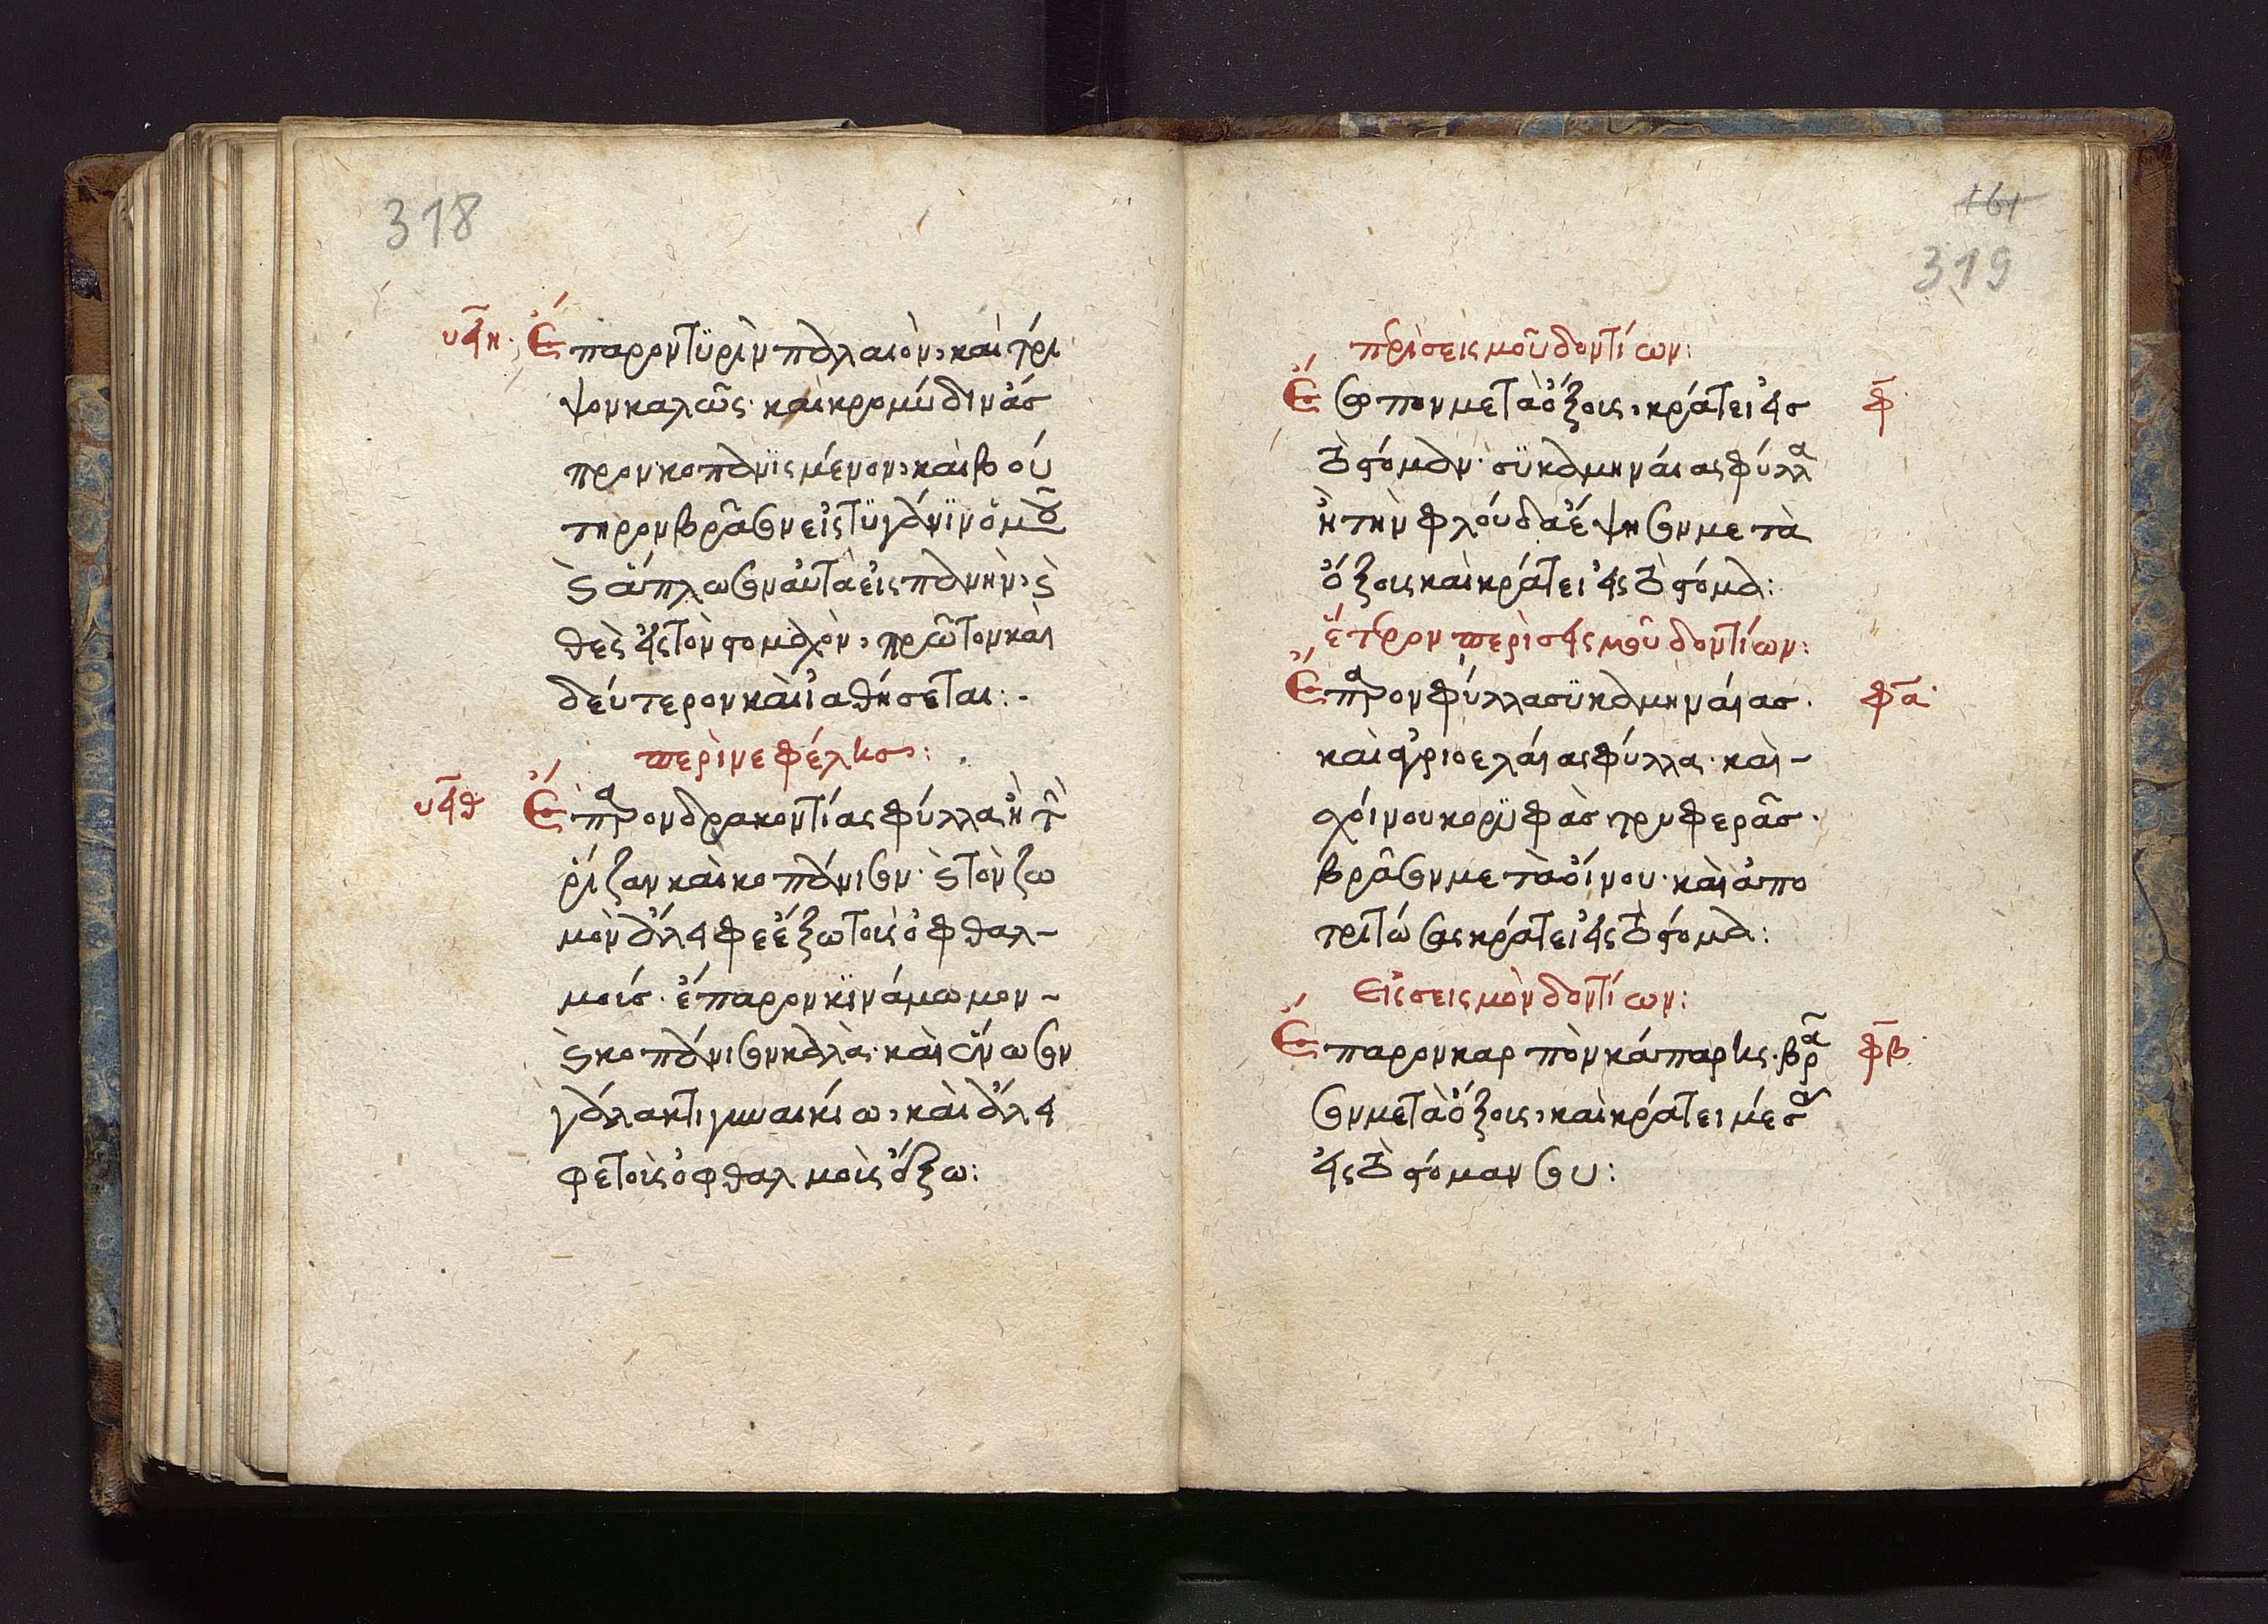 318
υϟη. Ἔπαρον τϋρὶν παλαιὸν, καὶ τρί
ψον καλῶς· καὶ κρομύδιν ἄσ
προν κοπανϊσμένον, καὶ βού
τηρον βρᾶσον εἰς τϋγάνϊν ὁμοῦ
ϛ ἅπλωσον αὐτὰ εἰς πανὴν, ϛ
θὲς εἰς τὸν στομαχὸν, πρῶτον καὶ
δεύτερον καὶ ἰαθήσεται:-
περὶ νεφέλης:
υϟθ Ἔπαρον δρακοντίας φύλλα ἢ τὴν
ῥίζαν καὶ κοπάνισον· ϛ τὸν ζω
μὸν ἄλειφε ἔξω τοῖς ὀφθαλ-
μοίς. ἔπαρον κϊνάμωμον-
ϛ κοπάνισον καλὰ· καὶ ἕνωσον
γάλακτι γυναικίω, καὶ ἄλει
φε τοῖς ὀφθαλμοῖς ὄξω:
161
319
πρὶ σεισμοῦ δοντίων:
Ἔσοπον μετὰ ὄξους, κράτει εἰς φ
τὸ στόμαν· σϋκαμηναίας φύλλα
ἢ τὴν φλούδα ἕψησον μετὰ
ὄξους καὶ κράτει εἰς τὸ στόμα:
ἕτερον περὶ σεισμοῦ δοντίων:
Ἔπαρον φύλλα σϋκαμηναίας. φα
καὶ ἀγριοελαίας φύλλα· καὶ-
σχοίνου κορϋφὰς τρυφερᾶς·
βρᾶσον μετὰ οἴνου· καὶ ἀπο
τριτώσας κράτει εἰς τὸ στόμα:
Εἰς σεισμὸν δοντίων:
Ἔπαρον καρπὸν κάπαρης· βρᾶ φβ
σον μετὰ ὄξους, καὶ κράτει μέσα
εἰς τὸ στόμαν σου: